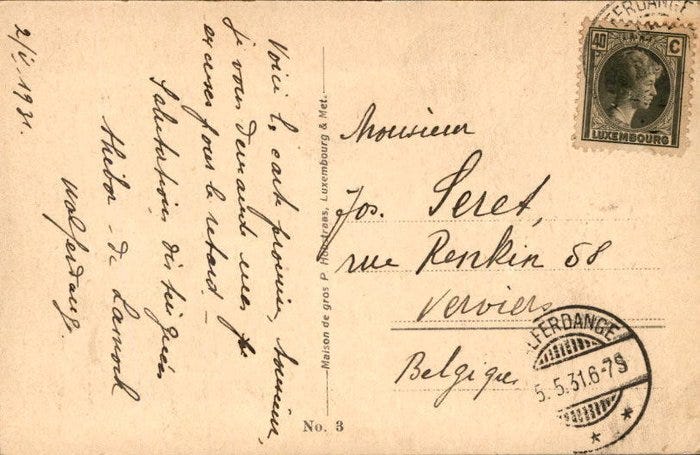 2/V. 1931.
Voici la carte promise, Monsieur,
je vous demande mes
excuses pour le retard. —
Salutations distinguées
de
Walferdange.
Maison de gros P. Houstraas, Luxembourg & Met.
No. 3
40 C
LUXEMBOURG
Monsieur
Jos. Seret,
rue Renkin 58
Verviers
Belgique
LFERDANGE
5.5.31.6-7S